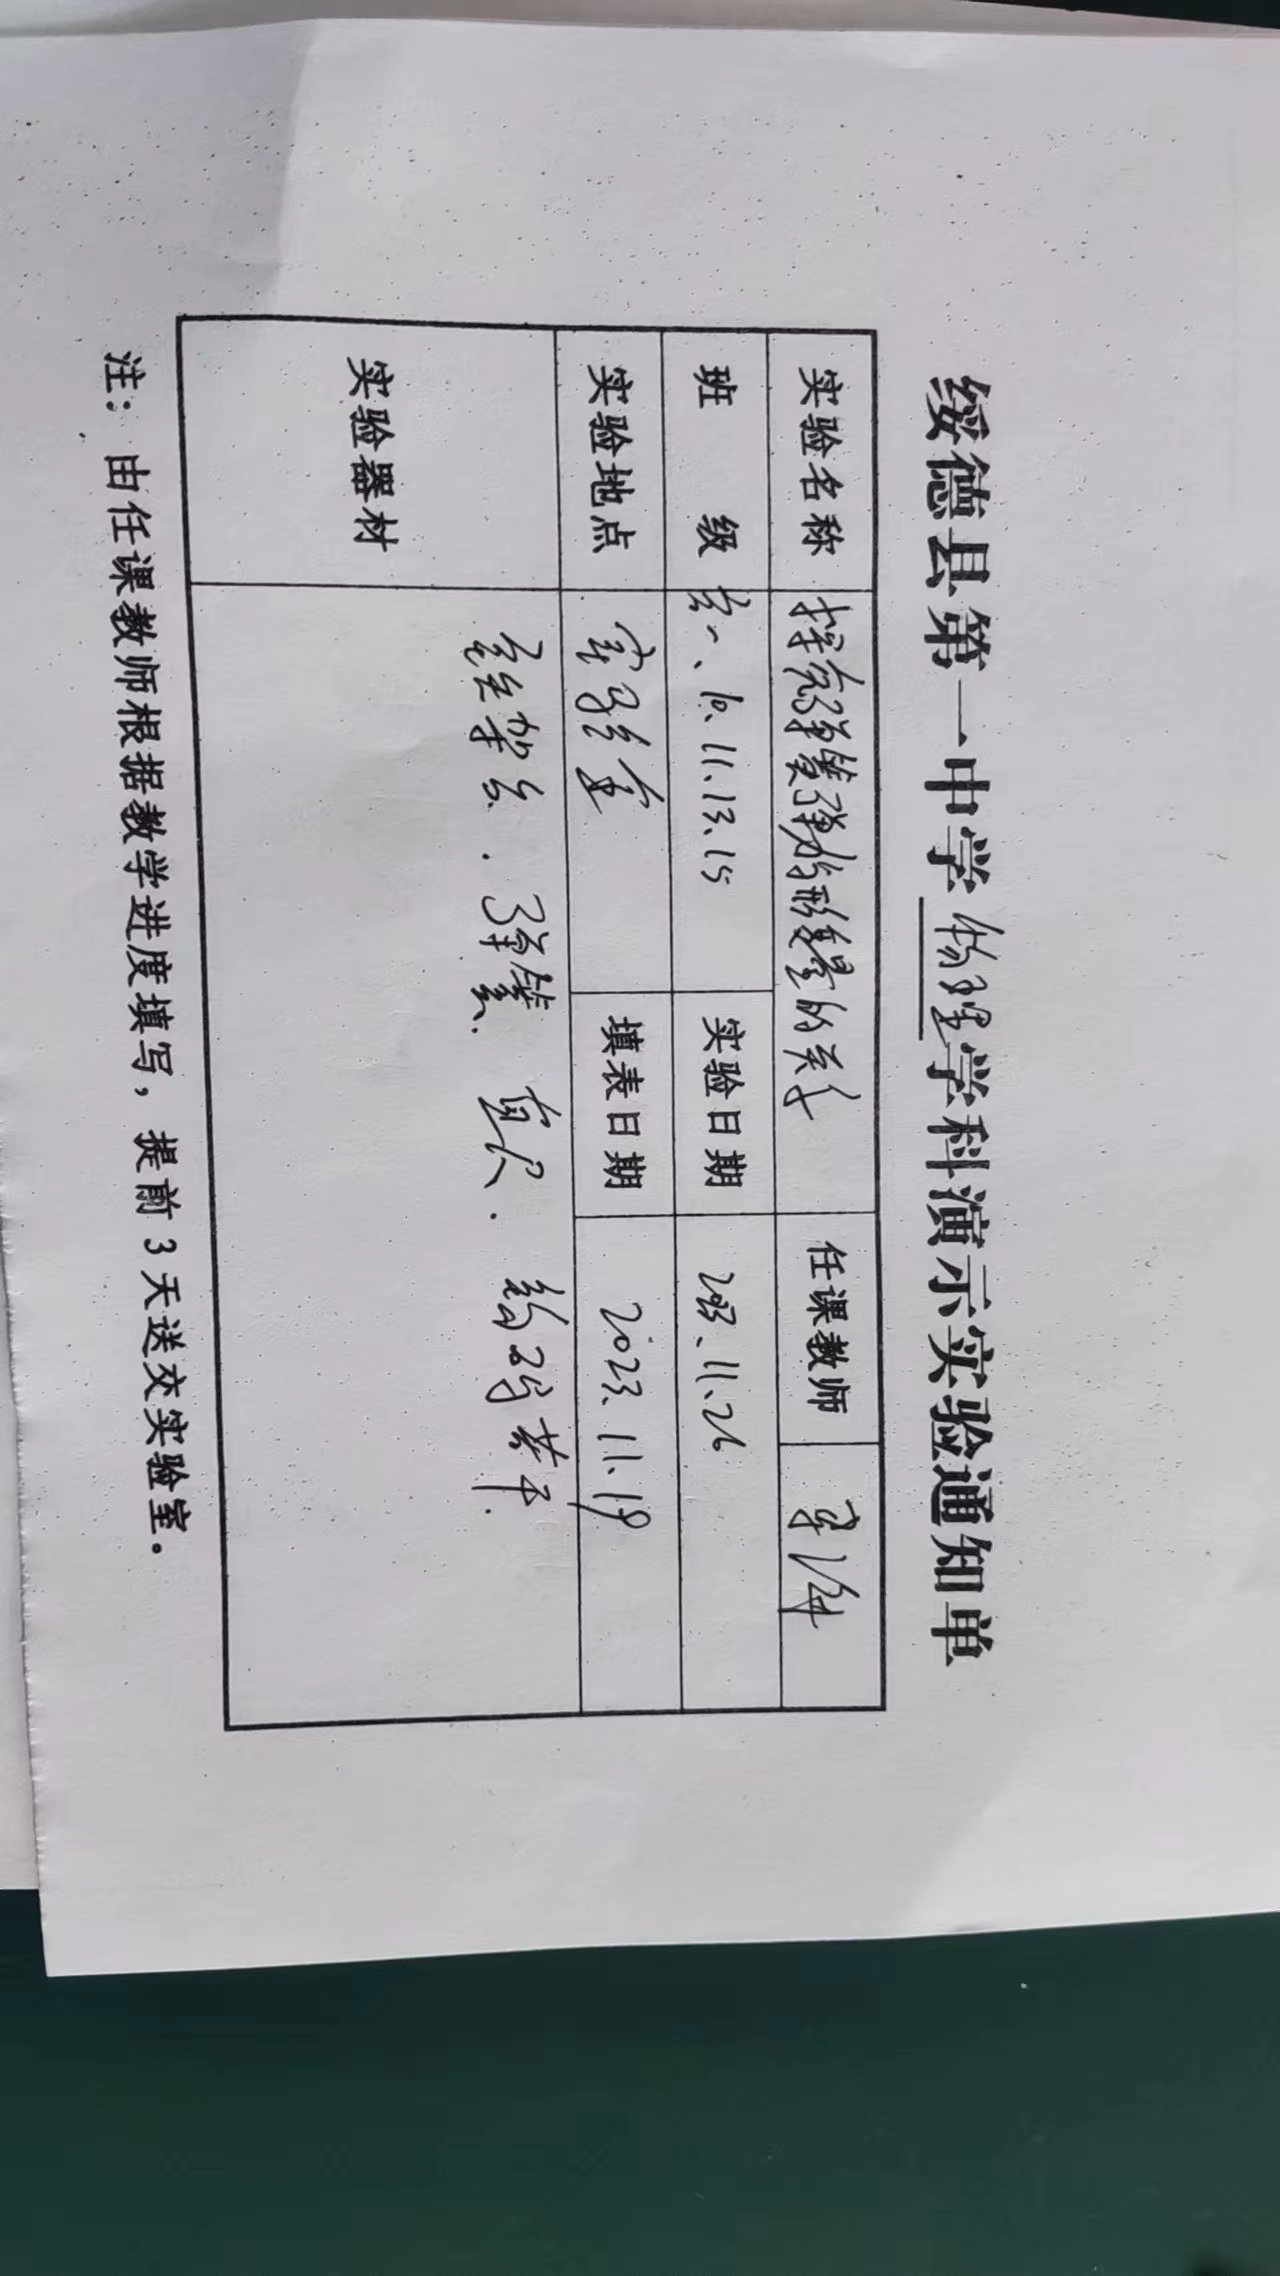 绥德县第一中学物理学科演示实验通知单
实验名称 探究弹簧弹力与形变量的关系 任课教师
班 级 高一、10.11.13.15 实验日期 2023.11.26
实验地点 实验室 填表日期 2023.11.19
实验器材 铁架台.弹簧.直尺.钩码若干.
注：由任课教师根据教学进度填写，提前3天送交实验室。